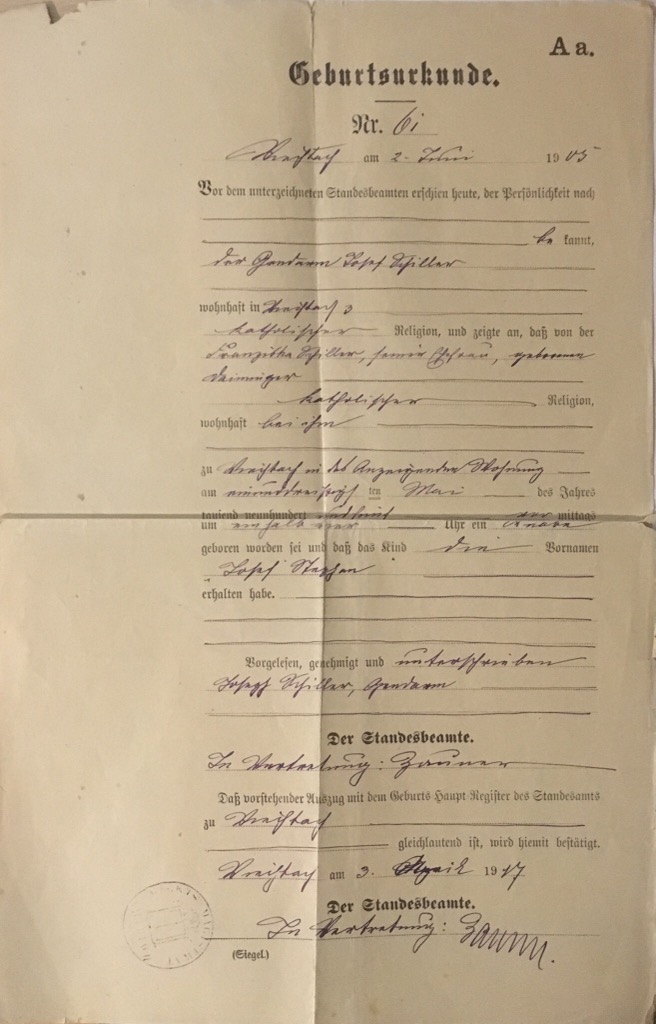 A a.
Geburtsurkunde.
Nr. 61
am 2. Juni 1905
Vor dem unterzeichneten Standesbeamten erschien heute, der Persönlichkeit nach
be kannt,
der Gendarm Josef Schiller
wohnhaft in
katholischer Religion, und zeigte an, daß von der
Franziska Schiller, seiner Ehefrau, geborenen
katholischer Religion,
wohnhaft bei ihm
zu in des Anzeigenden Wohnung
am einunddreißigs ten Mai des Jahres
tausend neunhundert und fünf vor mittags
um ein halb vier Uhr ein Knabe
geboren worden sei und daß das Kind die Vornamen
Josef Stephan
erhalten habe.
Vorgelesen, genehmigt und unterschrieben
Joseph Schiller, Gendarm
Der Standesbeamte.
In Vertretung: Zauner
Daß vorstehender Auszug mit dem Geburts Haupt-Register des Standesamts
zu
gleichlautend ist, wird hiemit bestätigt.
am 3. April 1917
Der Standesbeamte.
In Vertretung: Zauner.
(Siegel.)